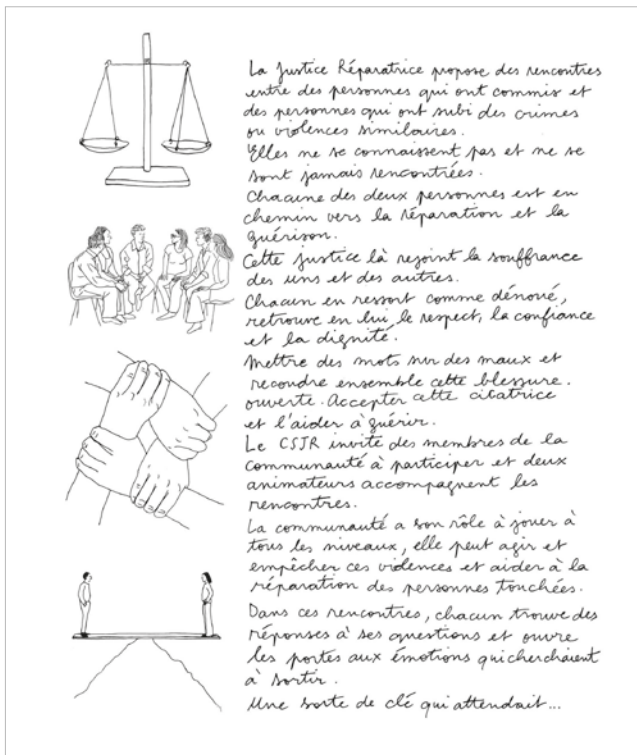 La Justice Réparatrice propose des rencontres
entre des personnes qui ont commis et
des personnes qui ont subi des crimes
ou violences similaires.
Elles ne se connaissent pas et ne se
sont jamais rencontrées.
Chacune des deux personnes est en
chemin vers la réparation et la
guérison.
Cette justice là rejoint la souffrance
des uns et des autres.
Chacun en ressort comme dénoué,
retrouve en lui le respect, la confiance
et la dignité.
Mettre des mots sur des maux et
recoudre ensemble cette blessure.
ouverte. Accepter cette cicatrice
et l'aider à guérir.
Le CSJR invite des membres de la
communauté à participer et deux
animateurs accompagnent les
rencontres.
La communauté a son rôle à jouer à
tous les niveaux, elle peut agir et
empêcher ces violences et aider à la
réparation des personnes touchées.
Dans ces rencontres, chacun trouve des
réponses à ses questions et ouvre
les portes aux émotions qui cherchaient
à sortir.
Une sorte de clé qui attendait...